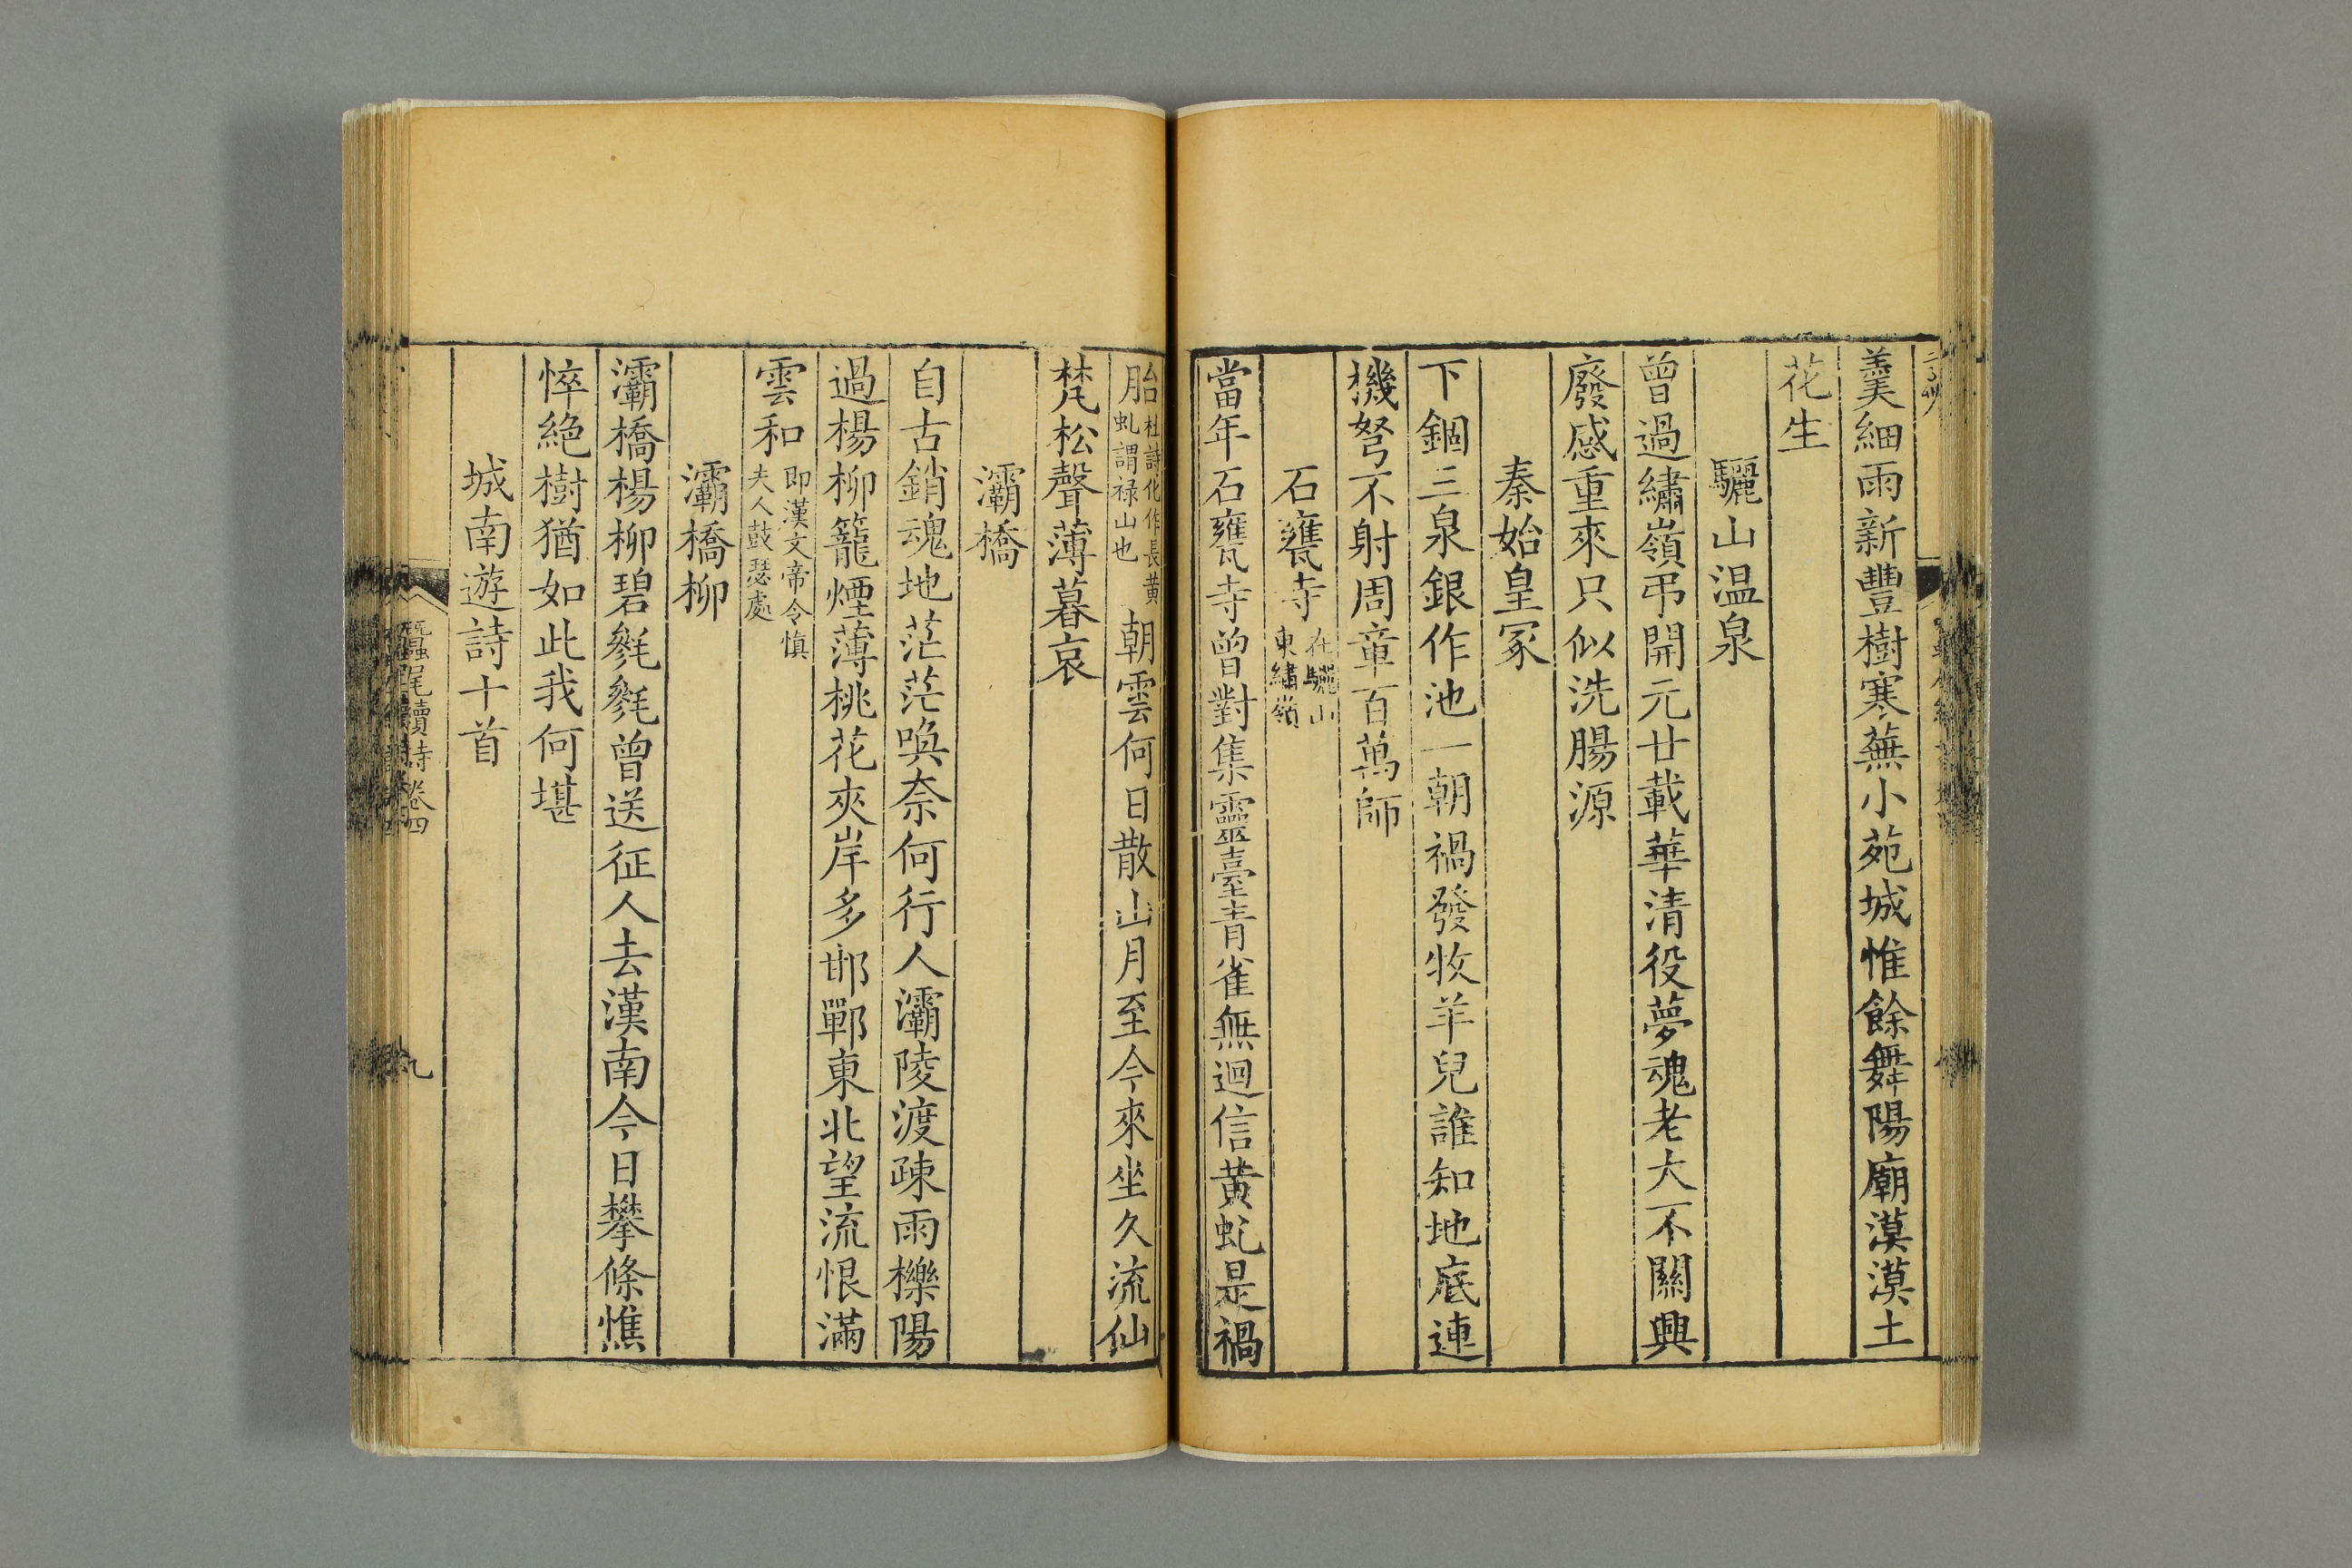 羹細雨新豐樹寒蕪小苑城惟餘舞陽廟漠漠土
花生
驪山温泉
曾過繡嶺弔開元廿載華清役夢魂老大不關興
廢感重來只似洗腸源
秦始皇冢
下錮三泉銀作池一朝禍發牧羊兒誰知地底連
機弩不射周章百萬師
石甕寺在驪山東繡嶺
當年石甕寺曾對集靈臺青雀無迴信黄虬是禍
胎杜詩化作長黄虬謂禄山也朝雲何日散山月至今來坐久流仙
梵松聲薄暮哀
灞橋
自古銷魂地茫茫喚奈何行人灞陵渡疎雨櫟陽
過楊柳籠煙薄桃花夾岸多邯鄲東北望流恨滿
雲和即漢文帝令慎夫人鼓瑟處
灞橋柳
灞橋楊柳碧毿毿曾送征人去漢南今日攀條憔
悴絕樹猶如此我何堪
城南遊詩十首
蠶尾續詩卷四
九